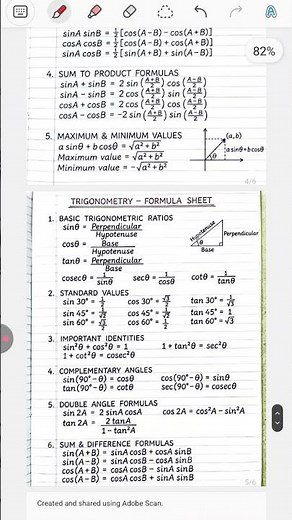 82%
sinA sinB = ½[cos(A-B) - cos(A+B)]
cosA cosB = ½[cos(A-B) + cos(A+B)]
sinA cosB = ½[sin(A+B) + sin(A-B)]
4. SUM TO PRODUCT FORMULAS
sinA + sinB = 2 sin(A+B/2) cos(A-B/2)
sinA - sinB = 2 cos(A+B/2) sin(A-B/2)
cosA + cosB = 2 cos(A+B/2) cos(A-B/2)
cosA - cosB = -2 sin(A+B/2) sin(A-B/2)
5. MAXIMUM & MINIMUM VALUES
a sinθ + b cosθ = √a² + b²
Maximum value = √a² + b²
Minimum value = -√a² + b²
(a, b)
a sinθ + b cosθ
θ
4/6
TRIGONOMETRY – FORMULA SHEET
1. BASIC TRIGONOMETRIC RATIOS
sinθ = Perpendicular
Hypotenuse
cosθ = Base
Hypotenuse
tanθ = Perpendicular
Base
Hypotenuse
Perpendicular
θ
Base
cosecθ = 1/sinθ secθ = 1/cosθ cotθ = 1/tanθ
2. STANDARD VALUES
sin 30° = ½ cos 30° = √3/2 tan 30° = 1/√3
sin 45° = 1/√2 cos 45° = 1/√2 tan 45° = 1
sin 60° = √3/2 cos 60° = ½ tan 60° = √3
3. IMPORTANT IDENTITIES
sin²θ + cos²θ = 1 1 + tan²θ = sec²θ
1 + cot²θ = cosec²θ
4. COMPLEMENTARY ANGLES
sin(90°-θ) = cosθ cos(90°-θ) = sinθ
tan(90°-θ) = cotθ sec(90°-θ) = cosecθ
5. DOUBLE ANGLE FORMULAS
sin 2A = 2 sinA cosA cos 2A = cos²A - sin²A
tan 2A = 2 tanA
1 - tan²A
6. SUM & DIFFERENCE FORMULAS
sin(A+B) = sinA cosB + cosA sinB
sin(A-B) = sinA cosB - cosA sinB
cos(A+B) = cosA cosB - sinA sinB
cos(A-B) = cosA cosB + sinA sinB
5/6
Created and shared using Adobe Scan.